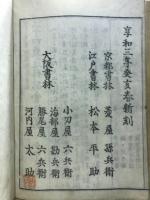 享和三年癸亥春新刻
京都書林 菱屋孫兵衛
江戸書林 松本平助
大坂書林 小刀屋六兵衛
海部屋勘兵衛
勝尾屋六兵衛
河内屋太助